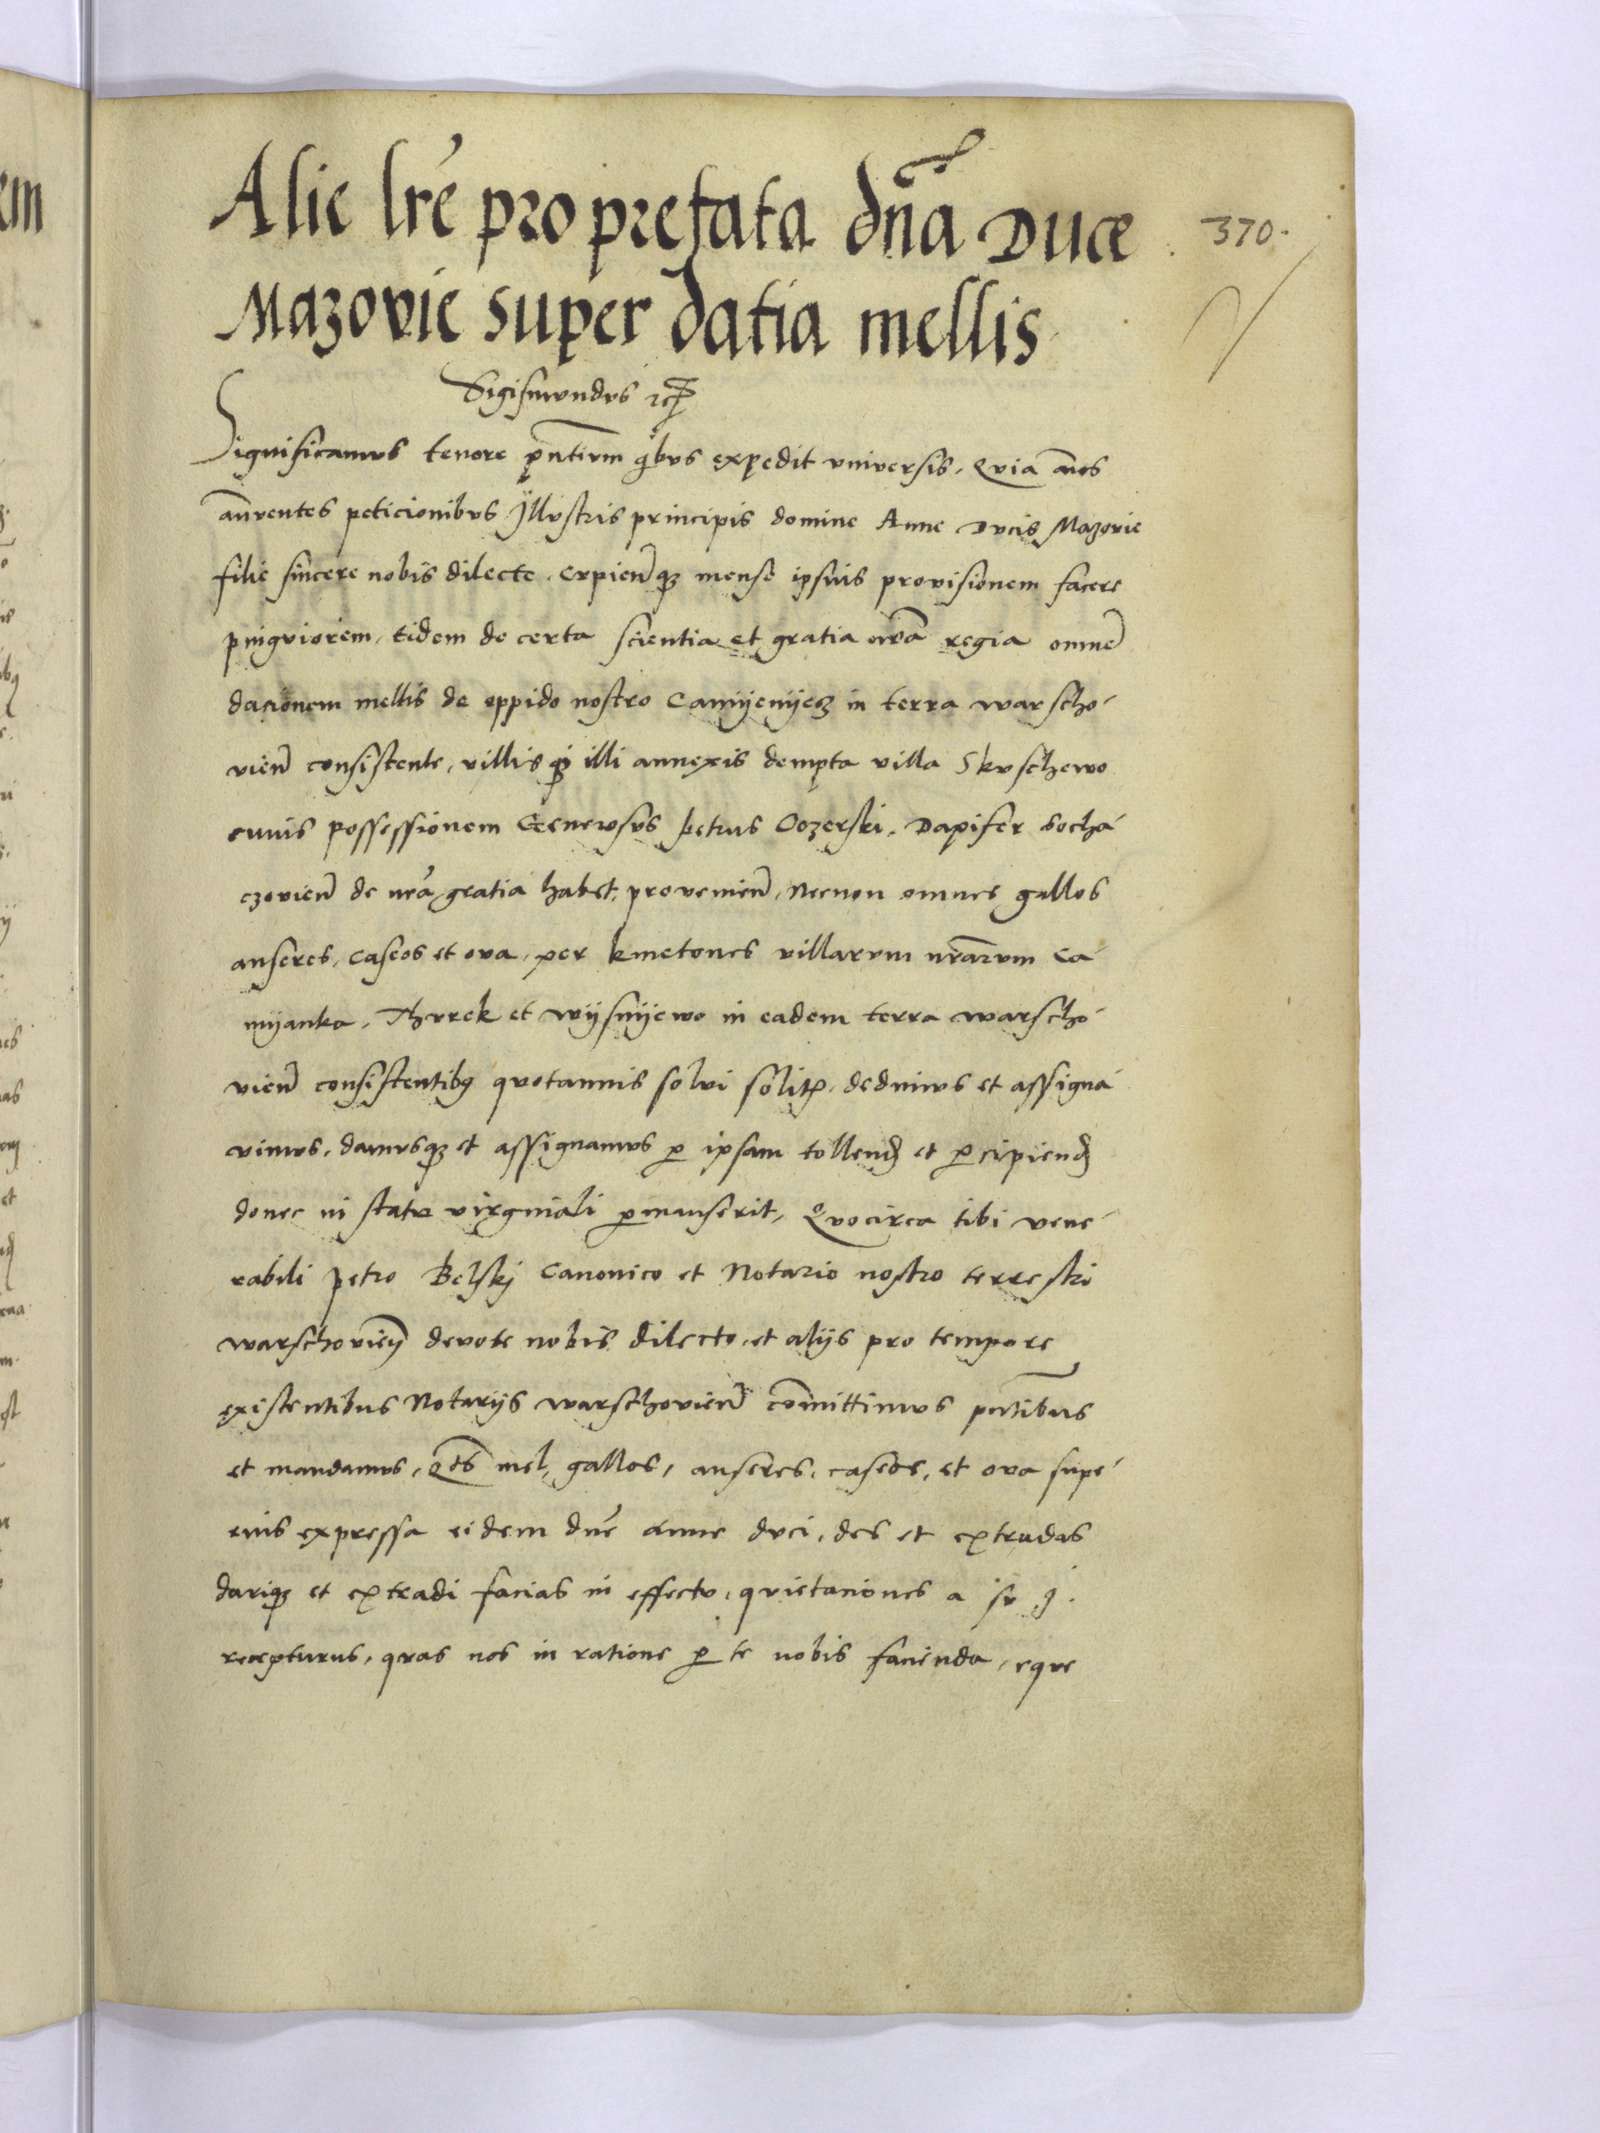 Alie lrẽ pro prefata dñã Duce
370.
Mazovie super datia mellis
Sigismundus etc
Significamus tenore pñtium qibus expedit universis, Quia nos
añuentes peticionibus Illustris principis domine Anne Ducis Mazovie
filie sincere nobis dilecte, cupieñqꝫ mense ipsius provisionem facere
pinguiorem, Eidem de certa scientia et gratia nrã regia omnẽ
dacionem mellis de oppido nostro Camijenijecz in terra warscho
vieñ consistente, villis qꝫ illi annexis dempta villa Skuschewo
cuius possessionem Generosus petrus Oozerski, Dapifer socha
czovieñ de nrã gratia habet, provenieñ, Necnon omnes gallos
anseres, caseos et ova, per kmetones villarum nrãrum Ca
mijanka, Thurek et wijsnijewo in eadem terra warscho
vieñ consistentibꝰ quotannis solvi solitꝭ, dedimus et assigna
vimus, damusqꝫ et assignamus ꝑ ipsam tollenđ et ꝑcipienđ
donec in statu virginali ꝑmanserit, Quocirca tibi vene
rabili petro Belskj Canonico et Notario nostro terrestri
warschovieñ devote nobis dilecto, et alijs pro tempore
existentibus Notarijs warschovieñ com̃ittimus pñtibus
et mandamus, Qts̃ mel, gallos, anseres, caseos, et ova supe
rius expressa eidem dnẽ Anne duci, des et extradas
dariqꝫ et extradi facias in effectu, quietaciones a se
recepturus, quas nos in ratione ꝑ te nobis facienda, eque